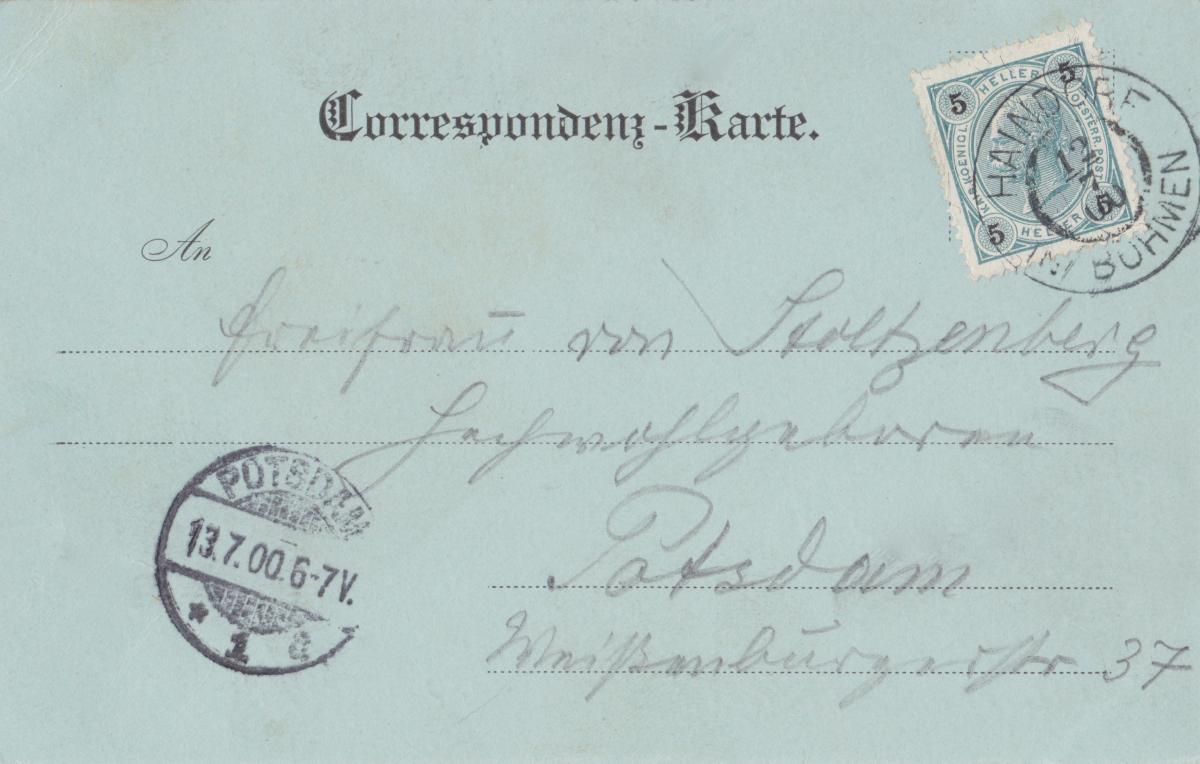 Correspondenz-Karte.
5 HELLER 5
KK.& KOENIGL. OESTERR. POST
5 HELLER 5
HAINDORF
12
00
IN BÖHMEN
An
Freifrau von Stoltzenberg
Hochwohlgeboren
Potsdam
Weißenburgerstr 37
POTSDAM
13.7.00.6-7V.
* 1 a